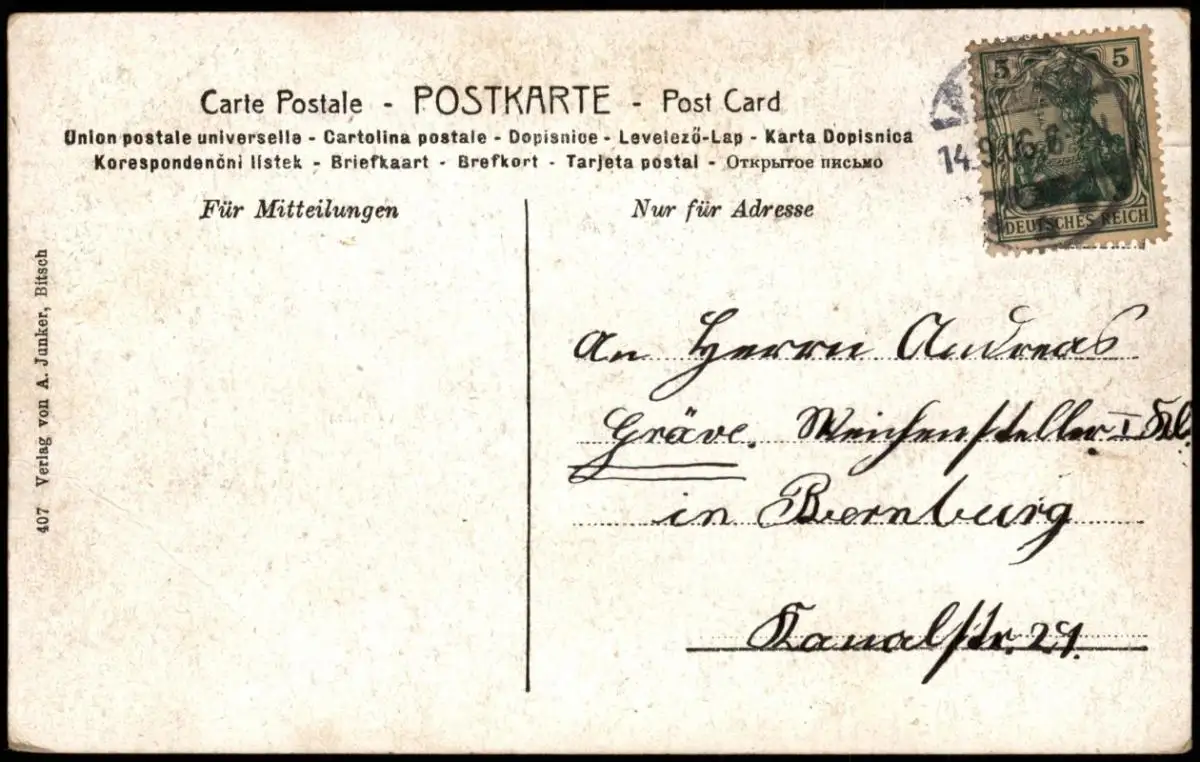 Carte Postale - POSTKARTE - Post Card
Union postale universelle - Cartolina postale - Dopisnice - Levelező-Lap - Karta Dopisnica
Korespondenčni listek - Briefkaart - Brefkort - Tarjeta postal - Открытое письмо
Für Mitteilungen
Nur für Adresse
407 Verlag von A. Junker, Bitsch
5 5
DEUTSCHES REICH
14.9.06.6-
An Herrn Andreas
Gräve. Weichensteller I Kl.
in Bernburg
Kanalstr. 29.